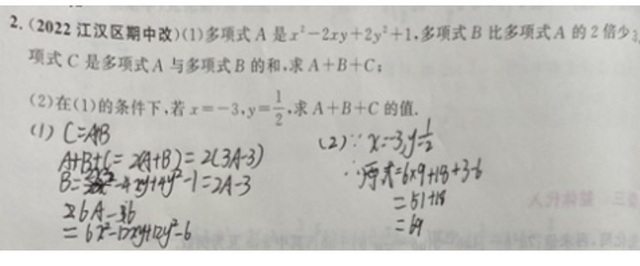 2.(2022 江汉区期中改)(1)多项式 A 是x²-2xy+2y²+1,多项式 B 比多项式 A 的 2 倍少3,
项式 C 是多项式 A 与多项式 B 的和,求 A+B+C;
(2)在(1)的条件下,若 x=-3,y=1/2,求 A+B+C 的值.
(1) C=A+B
A+B+C=2(A+B)=2(3A-3)
B=-4xy+4y²-1=2A-3
=6A-6
=6x²-12xy+12y²-6
(2)∵x=-3,y=1/2
∴原式=6×9+18+3-6
=51+18
=69